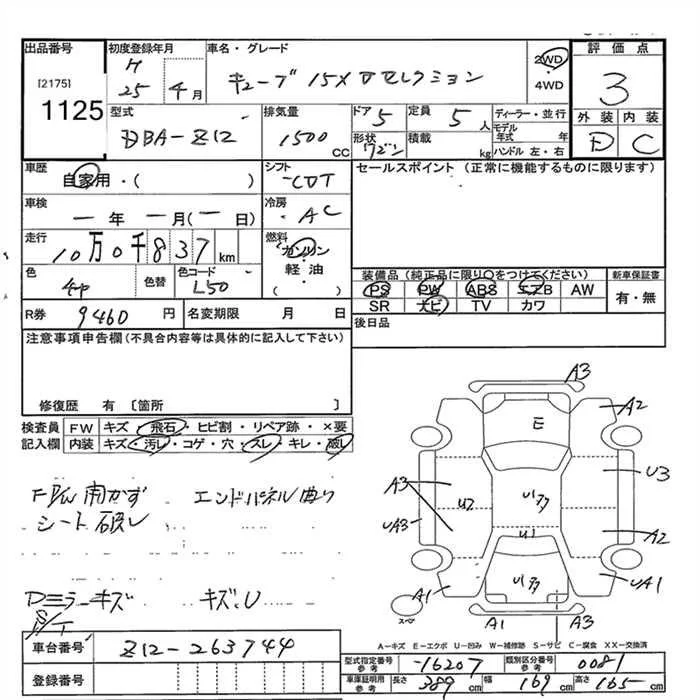 出品番号 初度登録年月 車名・グレード 評価点
[2175]
1125
H 25年 4月 キューブ 15X Vセレクション 2WD・4WD 3
型式 排気量 ドア 定員 ディーラー・並行 外装 内装
DBA-Z12 1500 CC 5 5人 モデル年式 年 D C
形状 ワゴン 積載 kg ハンドル 左・右
車歴 シフト セールスポイント (正常に機能するものに限ります)
自家用・( ) CVT
車検 冷房
一年 一月(一日) AC
走行 燃料
10万0千837km ガソリン・軽・油・( )
色 色替 色コード 装備品 (純正品に限り○をつけてください) 新車保証書
L50 PS PW ABS エアB AW 有・無
SR ナビ TV カワ
R券 9460円 名変期限 月 日 後日品
注意事項申告欄 (不具合内容等は具体的に記入して下さい)
修復歴 有 [箇所 ]
検査員 FW キズ・飛石・ヒビ割・リペア跡・×要
記入欄 内装 キズ・汚レ・コゲ・穴・スレ・キレ・破レ
F PW 開かず エンドパネル曲り
シート破レ
Dミラーキズ キズ、U
S/T
A3
A2
E
U3
A3
U2
UA3
A2
U1
A1
UA1
スペア
A1 A3
A-キズ E-エクボ U-凹み W-補修跡 S-サビ C-腐食 XX-交換済
車台番号 Z12-263744
登録番号
型式指定番号 参考 -16207 類別区分番号 参考 0081
車庫証明用 参考 長さ 389cm 幅 169cm 高さ 165cm